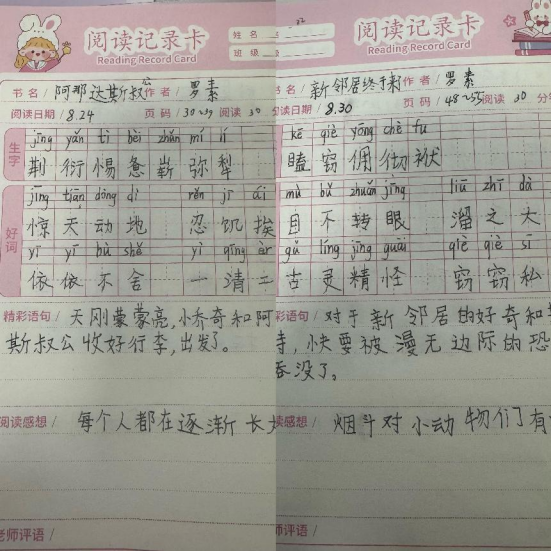 阅读记录卡
Reading Record Card
姓名
班级
书名/ 阿那达斯叔公 作者/ 罗素
阅读日期/ 8.24 页码/ 阅读 30
生字
jīng yǎn tì bèi zhǎn mí lí
荆 衍 惕 惫 崭 弥 犁
好词
jīng tiān dòng dì rěn jī ái
惊 天 动 地 忍 饥 挨
yī yī bù shě yì qīng èr
依 依 不 舍 一 清 二
精彩语句/ 天刚蒙蒙亮,小乔奇和阿
斯叔公收好行李,出发了。
阅读感想/ 每个人都在逐渐长
老师评语/
阅读记录卡
Reading Record Card
书名/ 新邻居终于来 作者/ 罗素
阅读日期/ 8.30 页码/ 48~55 阅读 30 分
kē qiè yōng chè fu
瞌 窃 佣 彻 袱
mù bù zhuǎn jīng liū zhī dà
目 不 转 眼 溜 之 大
gǔ líng jīng guài qiè qiè sī
古 灵 精 怪 窃 窃 私
精彩语句/ 对于新邻居的好奇和
待,快要被漫无边际的恐
吞没了。
阅读感想/ 烟斗对小动物们了有
老师评语/